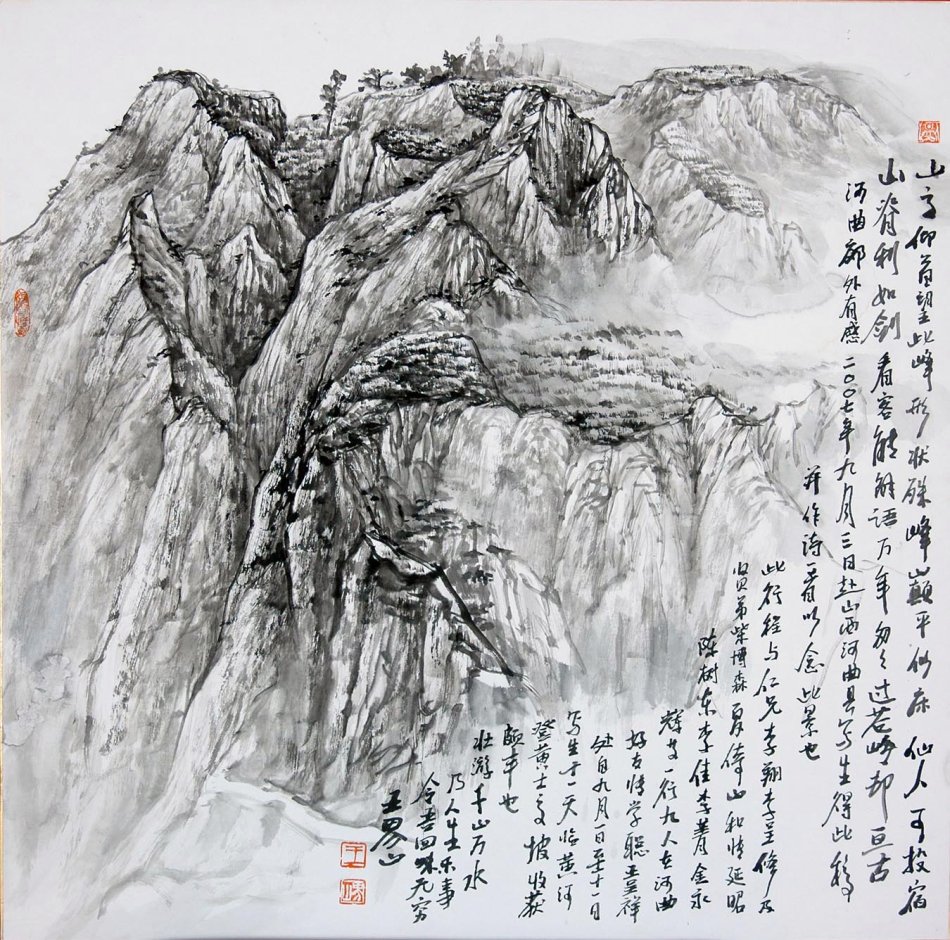 山高仰首望此峰形状殊峰山巅平似床仙人可投宿
山脊利如剑看客能解语万年匆匆过苍峰却亘古
河曲郊外有感二〇〇七年九月三日赴山西河曲县写生得此稿
并作诗一首以念此景也
此行程与仁兄李翔李呈修及
贤弟柴博森夏倚山和情延昭
陈树东李佳李菁金永
辉等一行九人在河曲
好友情学聪孟祥
处自九月一日至十一日
写生十一天临黄河
登黄土之坡收获
颇丰也
壮游千山万水
乃人生乐事
令吾回味无穷
王界山